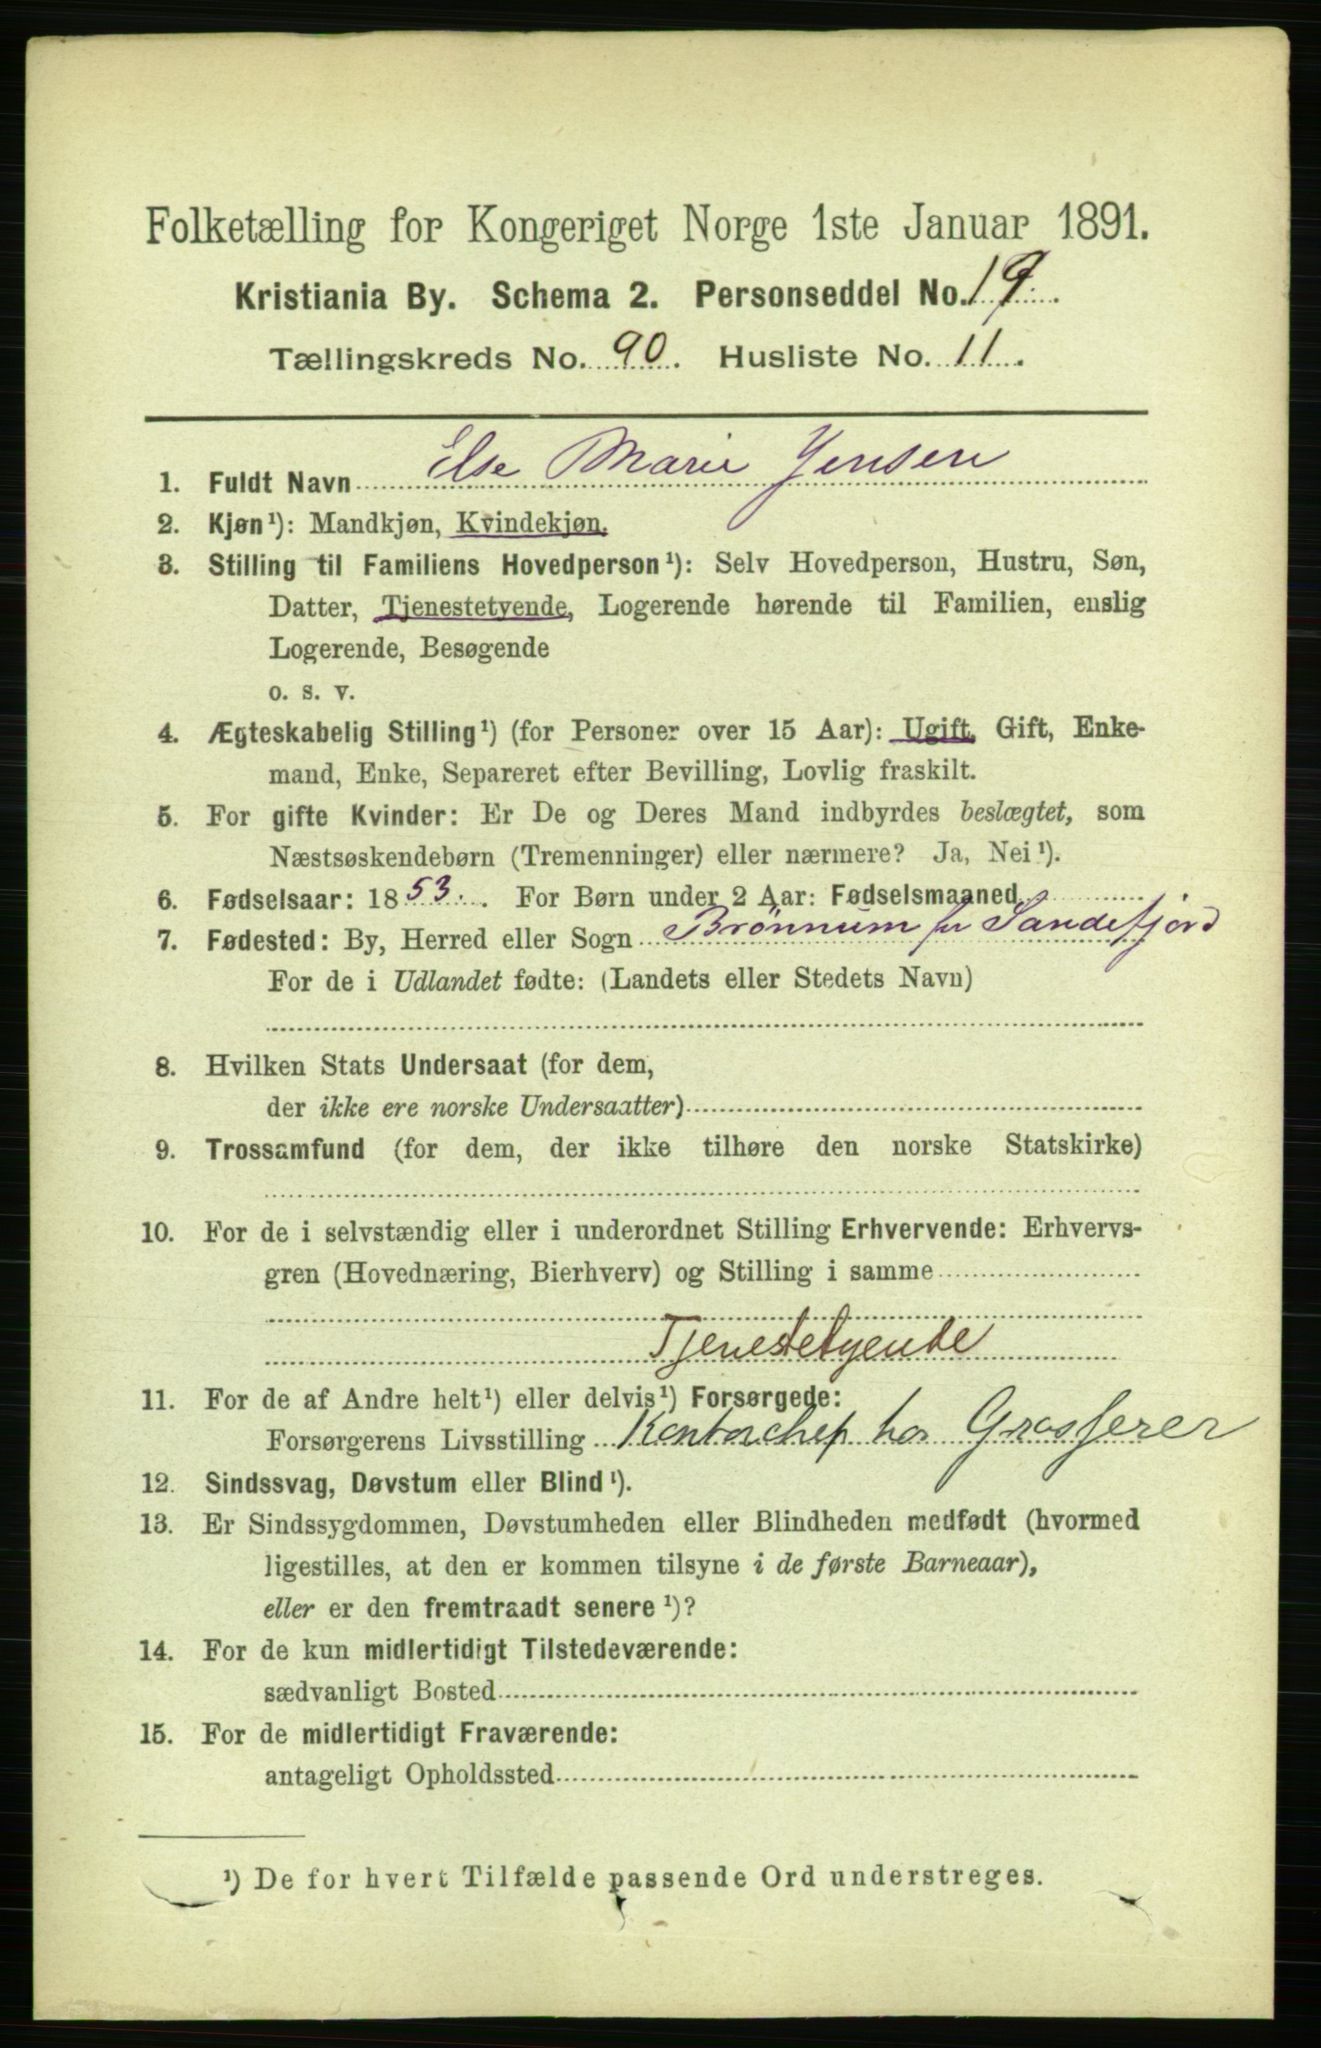 Folketælling for Kongeriget Norge 1ste Januar 1891.
Kristiania By. Schema 2. Personseddel No. 19.
Tællingskreds No. 90. Husliste No. 11.
1. Fuldt Navn Else Marie Jensen
2. Kjøn¹): Mandkjøn, Kvindekjøn.
3. Stilling til Familiens Hovedperson¹): Selv Hovedperson, Hustru, Søn,
Datter, Tjenestetyende, Logerende hørende til Familien, enslig
Logerende, Besøgende
o. s. v.
4. Ægteskabelig Stilling¹) (for Personer over 15 Aar): Ugift, Gift, Enke-
mand, Enke, Separeret efter Bevilling, Lovlig fraskilt.
5. For gifte Kvinder: Er De og Deres Mand indbyrdes beslægtet, som
Næstsøskendebørn (Tremenninger) eller nærmere? Ja, Nei¹).
6. Fødselsaar: 1853. For Børn under 2 Aar: Fødselsmaaned
7. Fødested: By, Herred eller Sogn Brønnum Sandefjord
For de i Udlandet fødte: (Landets eller Stedets Navn)
8. Hvilken Stats Undersaat (for dem,
der ikke ere norske Undersaatter)
9. Trossamfund (for dem, der ikke tilhøre den norske Statskirke)
10. For de i selvstændig eller i underordnet Stilling Erhvervende: Erhvervs-
gren (Hovednæring, Bierhverv) og Stilling i samme
Tjenestetyende
11. For de af Andre helt¹) eller delvis¹) Forsørgede:
Forsørgerens Livsstilling Kontorchef hos Grosserer
12. Sindssvag, Døvstum eller Blind¹).
13. Er Sindssygdommen, Døvstumheden eller Blindheden medfødt (hvormed
ligestilles, at den er kommen tilsyne i de første Barneaar),
eller er den fremtraadt senere¹)?
14. For de kun midlertidigt Tilstedeværende:
sædvanligt Bosted
15. For de midlertidigt Fraværende:
antageligt Opholdssted
¹) De for hvert Tilfælde passende Ord understreges.